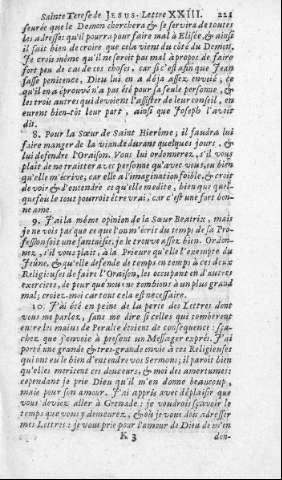 Sainte Terese de JESUS. Lettre XXIII. 221
seurée que le Demon cherchera & se servira de toutes
les adresses qu'il pourra pour faire mal à Elisée, & ainsi
il fait bien de croire que cela vient du côté du Demon.
Je crois même qu'il ne seroit pas mal à propos de faire
fort peu de cas de ces choses, car si c'est afin que Jean
fasse penitence, Dieu lui en a déja assez envoié, ce
qu'il en a éprouvé n'a pas été pour sa seule personne, &
les trois autres qui devoient l'assister de leur conseil, en
eurent bien-tôt leur part, ainsi que Joseph l'avoit
dit.
8. Pour la Sœur de Saint Hierôme; il faudra lui
faire manger de la viande durant quelques jours, &
lui défendre l'Oraison. Vous lui ordonnerez, s'il vous
plait de ne traitter avec personne qu'avec vous, ou bien
qu'elle m'écrive, car elle a l'imagination foible, & croit
de voir & d'entendre ce qu'elle medite, bien que quel-
quefois le tout pourroit être vrai, car c'est une fort bon-
ne ame.
9. J'ai la même opinion de la Sœur Beatrix, mais
je ne vois pas que ce que l'on m'écrit du temps de sa Pro-
fession soit une fantaisie, je le trouve assez bien. Ordon-
nez, s'il vous plait, à la Prieure qu'elle l'exempte du
Jeûne, & qu'elle défende de temps en temps à ces deux
Religieuses de faire l'Oraison, les occupant en d'autres
exercices, de peur que nous ne tombions à un plus grand
mal; croiez-moi car tout cela est necessaire.
10. J'ai été en peine de la perte des Lettres dont
vous me parlez, sans me dire si celles qui tomberent
entre les mains de Peralte étoient de consequence: sça-
chez que j'envoie à present un Messager exprés. J'ai
porté une grande & tres-grande envie à ces Religieuses
qui ont eu le bien d'entendre vos Sermons; il paroît bien
qu'elles meritent ces douceurs, & moi des amertumes:
cependant je prie Dieu qu'il m'en donne beaucoup,
mais pour son amour. J'ai appris avec déplaisir que
vous deviez aller à Grenade: je voudrois sçavoir le
temps que vous y demeurez, & où je vous dois adresser
mes Lettres: je vous prie pour l'amour de Dieu de m'en
K 3 don-